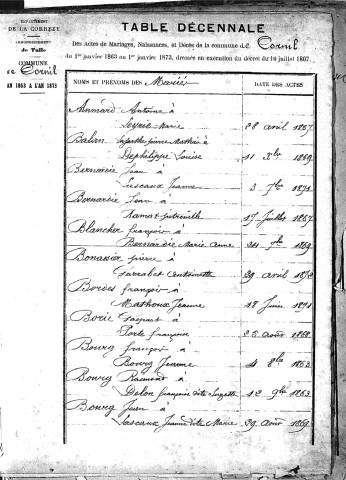 DÉPARTEMENT
DE LA CORRÈZE
ARRONDISSEMENT
de Tulle
COMMUNE
de Cornil
AN 1863 À L'AN 1873
TABLE DÉCENNALE
Des Actes de Mariages, Naissances, et Décès de la commune de Cornil
du 1er janvier 1863 au 1er janvier 1873, dressée en exécution du décret du 20 juillet 1807.
NOMS ET PRÉNOMS DES Mariés DATE DES ACTES
Antoine à
Marie 28 avril 1867
pierre Mathieu à
Dephilippe Louise 11 Xbre 1869
Bernardie Jean à
Lascaux Jeanne 3 7bre 1871
Bernardie Jean à
Ramat 17 Juillet 1867
Blancher françois à
Bernardie Marie Anne 1869
Bonassier pierre à
Antoinette 29 avril 1872
Bordes françois à
Mathoux Jeanne 18 Juin 1871
Borie Gaspart à
Porte françoise 25 août 1868
Bourg françois à
Bourg Jeanne 4 8bre 1863
Bourg Raymond à
Delon françoise dite Suzette 12 9bre 1863
Bourg Jean à
Lascaux Jeanne dite Marie 29 Août 1869